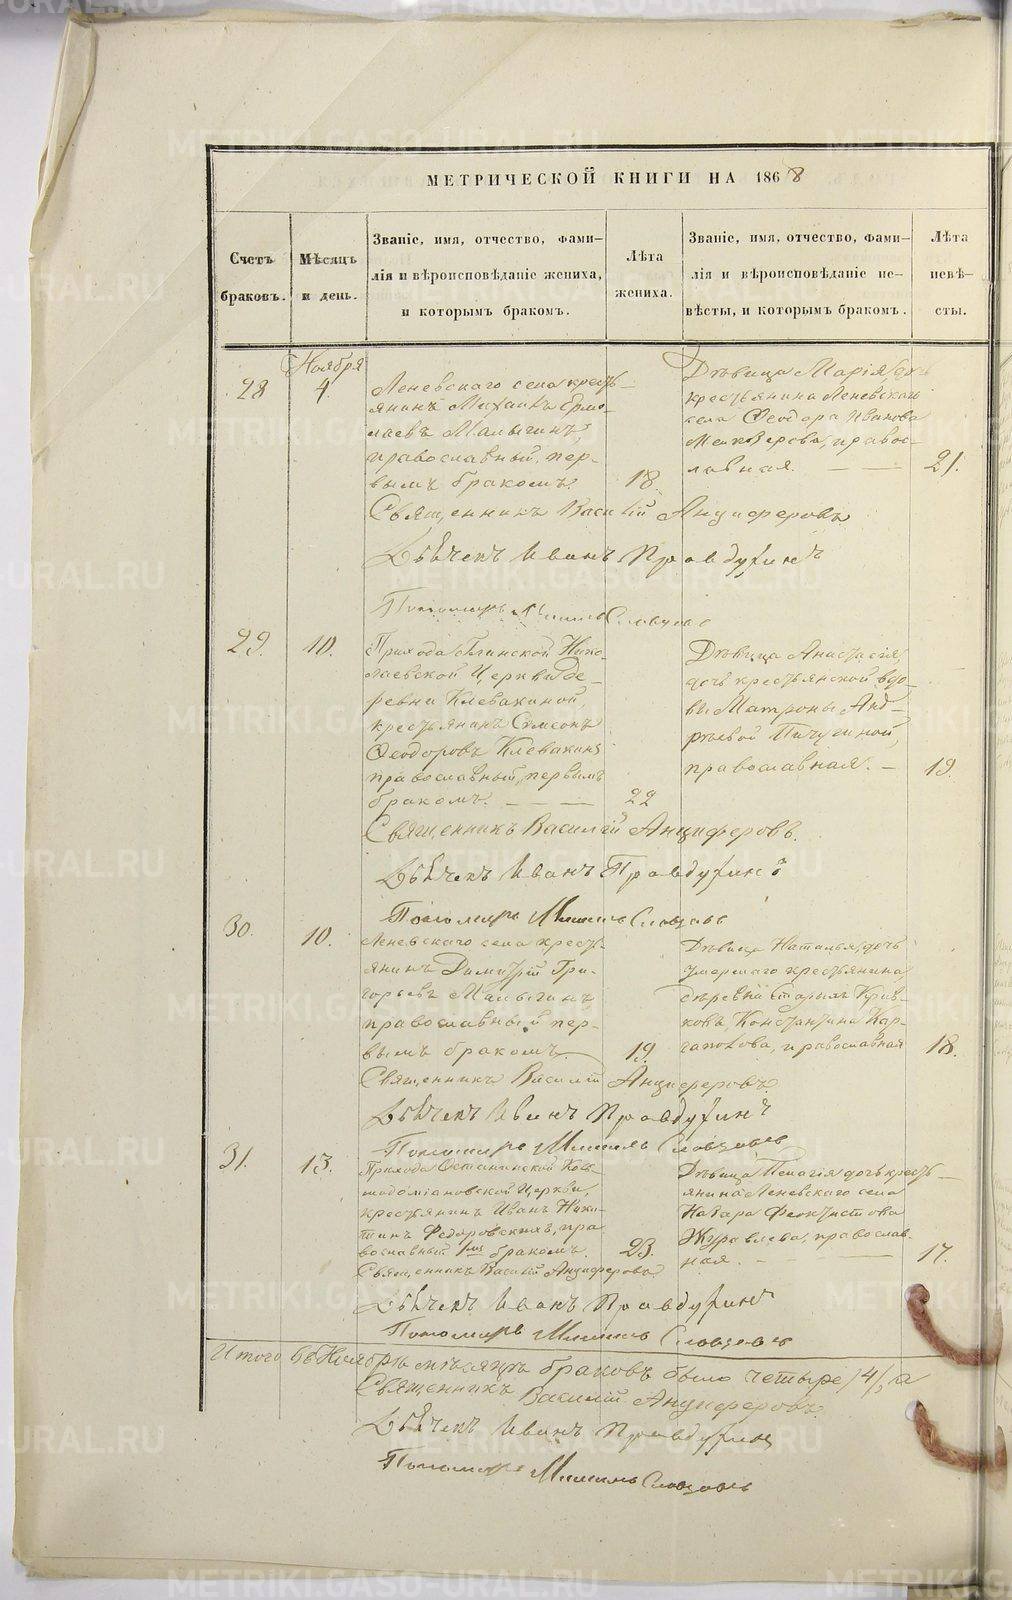 МЕТРИЧЕСКОЙ КНИГИ НА 1868
Счетъ
браковъ.
Мѣсяцъ
и день.
Званіе, имя, отчество, фами-
лія и вѣроисповѣданіе жениха,
и которымъ бракомъ.
Лѣта
жениха.
Званіе, имя, отчество, фами-
лія и вѣроисповѣданіе не-
вѣсты, и которымъ бракомъ.
Лѣта
невѣ-
сты.
28
Ноября
4.
Леневскаго села кресть-
янинъ Михаилъ Ермо-
лаевъ Малыгинъ,
православный, пер-
вымъ бракомъ.
18.
Дѣвица Марія, дочь
крестьянина Леневскаго
села Ѳеодора Иванова
православная.
21.
Священникъ Василій Анциферовъ
Дьячекъ Иванъ Правдухинъ
Пономарь Словцовъ
29.
10.
Прихода Глинской Нико-
лаевской Церкви де-
ревни Клевакиной,
крестьянинъ Симеонъ
Ѳеодоровъ Клевакинъ
православный, первымъ
бракомъ.
22
Дѣвица Анастасія,
дочь крестьянской вдо-
вы Матроны Анд-
реевой Пичугиной,
православная.
19.
Священникъ Василій Анциферовъ.
Дьячекъ Иванъ Правдухинъ
Пономарь Словцовъ
30.
10.
Леневскаго села кресть-
янинъ Димитрій Гри-
горьевъ Малыгинъ
православный пер-
вымъ бракомъ.
19.
Дѣвица Наталья, дочь
умершаго крестьянина
деревни Старыхъ Крив-
ковъ Константина Кар-
гаполова, православная
18.
Священникъ Василій Анциферовъ.
Дьячекъ Иванъ Правдухинъ
Пономарь Словцовъ
31.
13.
Прихода Останинской Кос-
модоміановской Церкви,
крестьянинъ Иванъ Ники-
тинъ Федоровскихъ, пра-
вославный 1мъ бракомъ.
23.
Дѣвица Пелагія дочь кресть-
янина Леневскаго села
Назара Феоктистова
Журавлева, православ-
ная.
17.
Священникъ Василій Анциферовъ
Дьячекъ Иванъ Правдухинъ
Пономарь Словцовъ
Итого въ Ноябрѣ мѣсяцѣ браковъ было четыре /4/,
Священникъ Василій Анциферовъ
Дьячекъ Иванъ Правдухинъ
Пономарь Словцовъ
METRIKI.GASO-URAL.RU